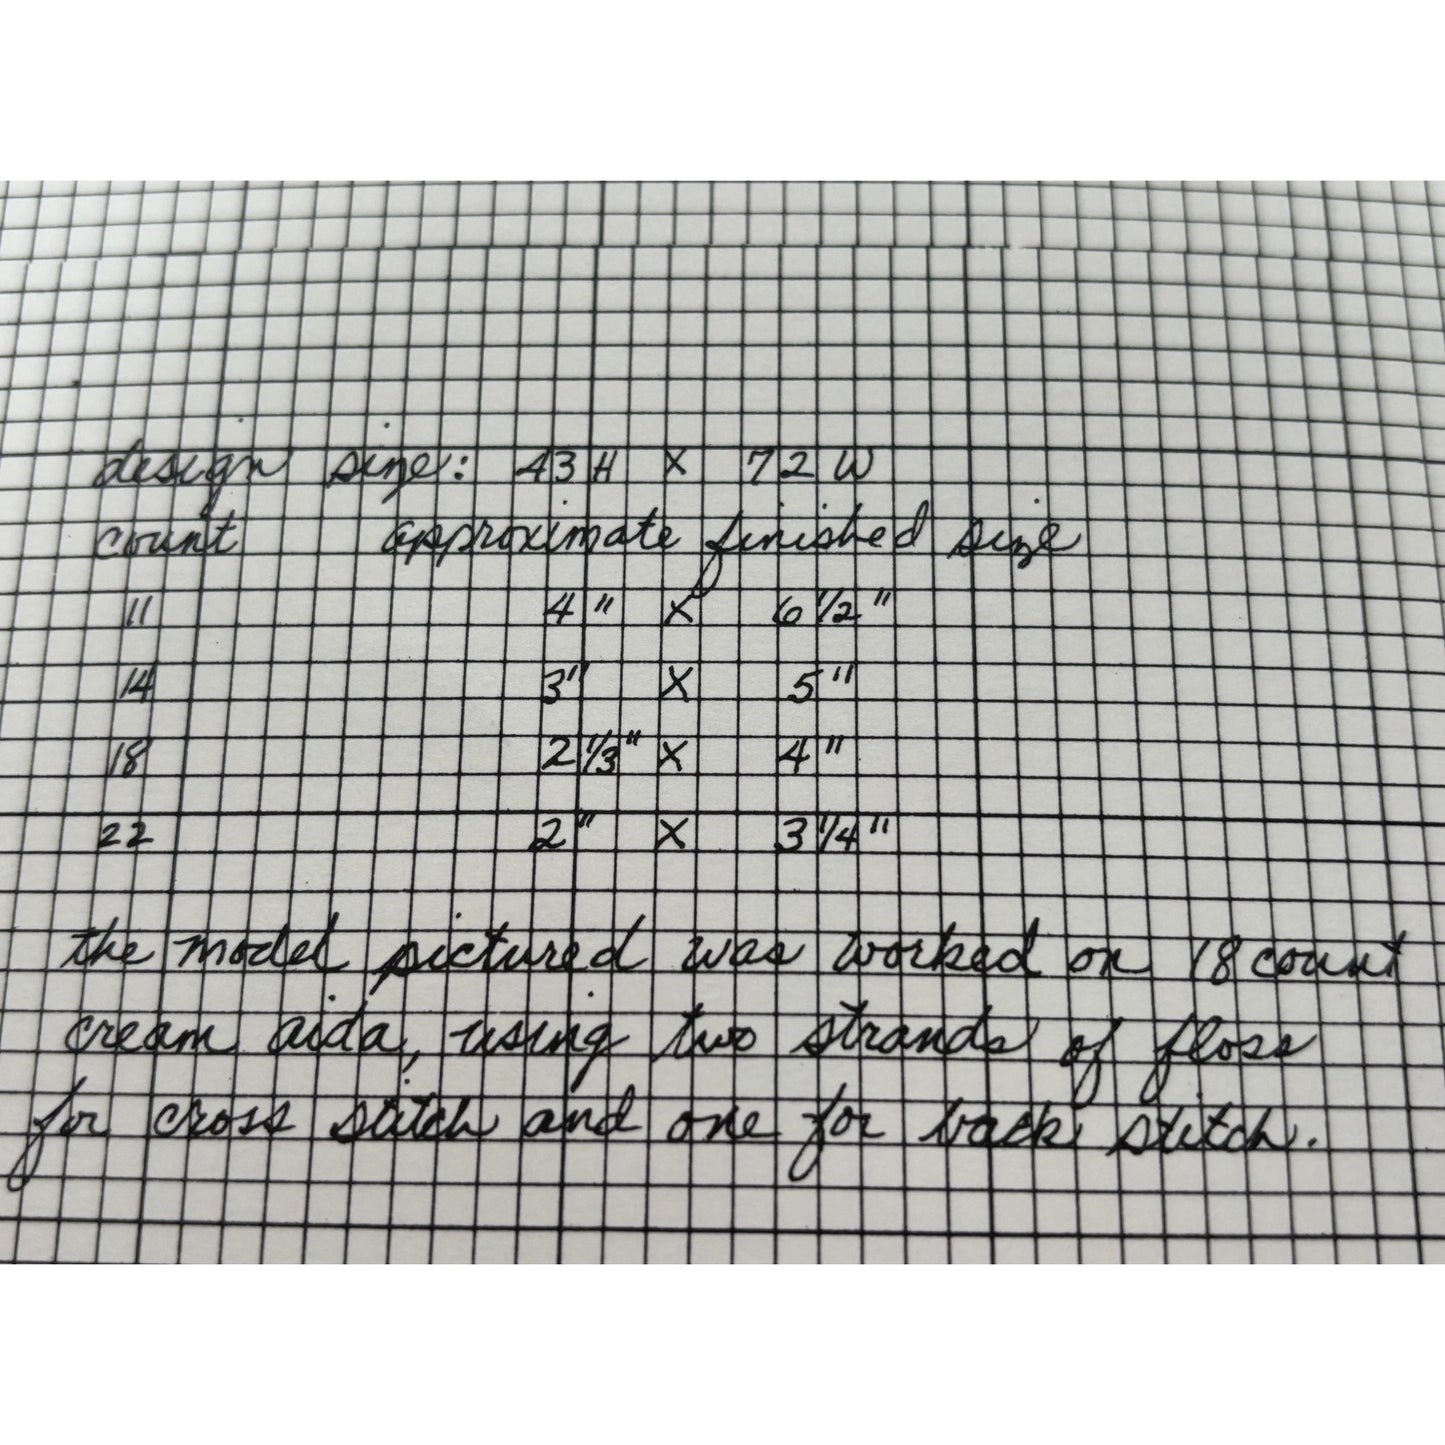 design size: 43 H X 72 W
count approximate finished size
11 4" X 6 1/2"
14 3" X 5"
18 2 1/3" X 4"
22 2" X 3 1/4"
the model pictured was worked on 18 count
cream aida, using two strands of floss
for cross stitch and one for back stitch.